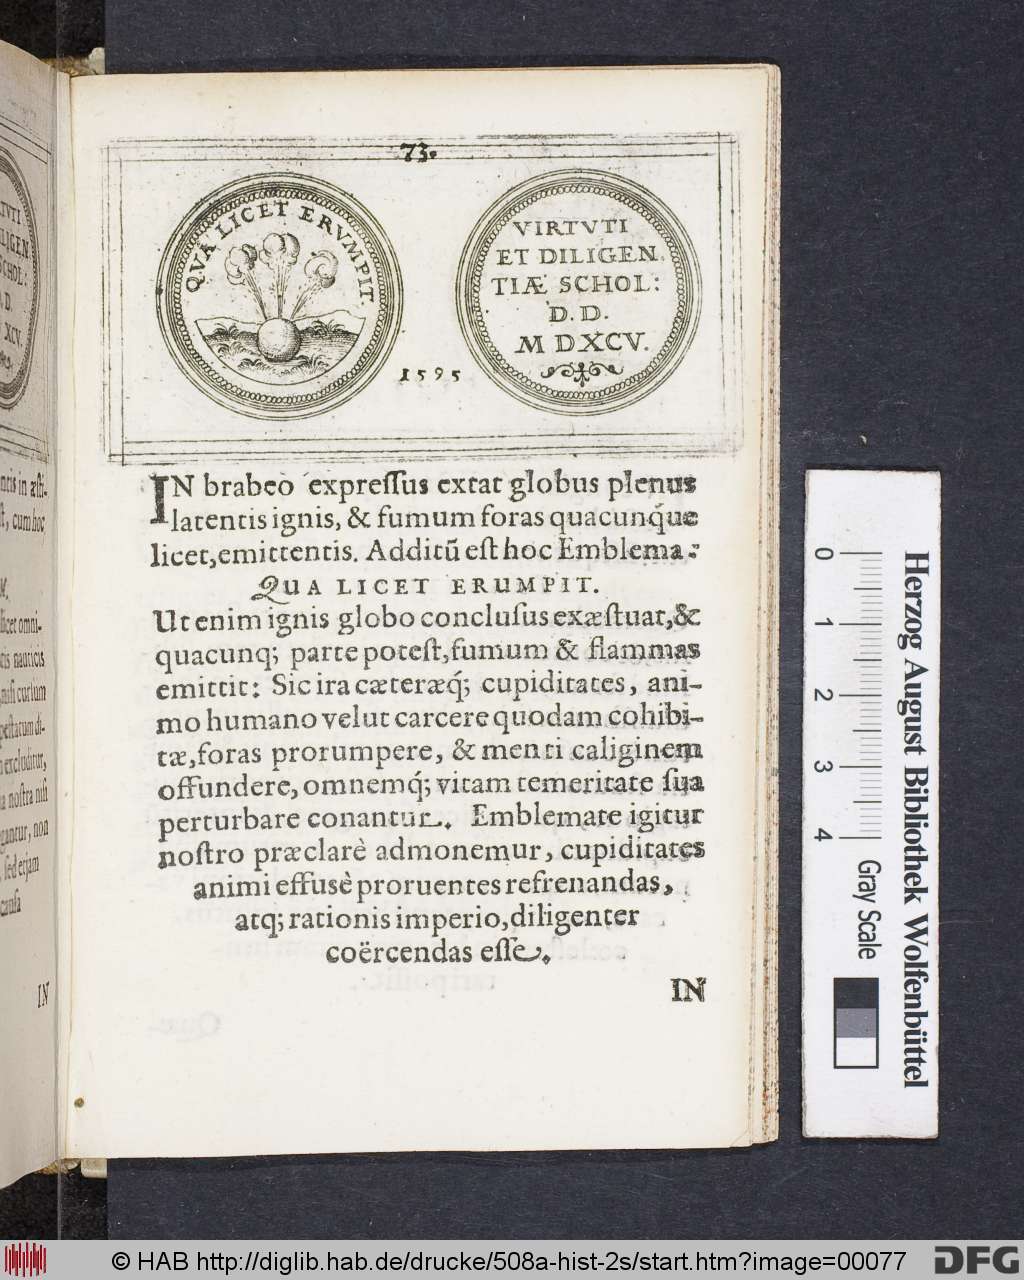 73.
QVA LICET ERVMPIT.
VIRTVTI
ET DILIGEN
TIÆ SCHOL:
D. D.
M DXCV.
1595
IN brabeo expressus extat globus plenus
latentis ignis, & fumum foras quacunque
licet, emittentis. Additũ est hoc Emblema:
QUA LICET ERUMPIT.
Ut enim ignis globo conclusus exæstuat, &
quacunq; parte potest, fumum & flammas
emittit: Sic ira cæteræq́; cupiditates, ani-
mo humano velut carcere quodam cohibi-
tæ, foras prorumpere, & menti caliginem
offundere, omnemq́; vitam temeritate sua
perturbare conantur. Emblemate igitur
nostro præclarè admonemur, cupiditates
animi effusè proruentes refrenandas,
atq; rationis imperio, diligenter
coërcendas esse.
IN
TVTI
ILIGEN
SCHOL:
D.
XCV.
ntis in æsti-
st, cum hoc
M.
licet omni-
tis nauticis
nisi cursum
pestatum di-
excluditur,
a nostra nisi
gantur, non
, sed etjam
causa
IN
0 1 2 3 4
Herzog August Bibliothek Wolfenbüttel
Gray Scale
© HAB http://diglib.hab.de/drucke/508a-hist-2s/start.htm?image=00077
DFG